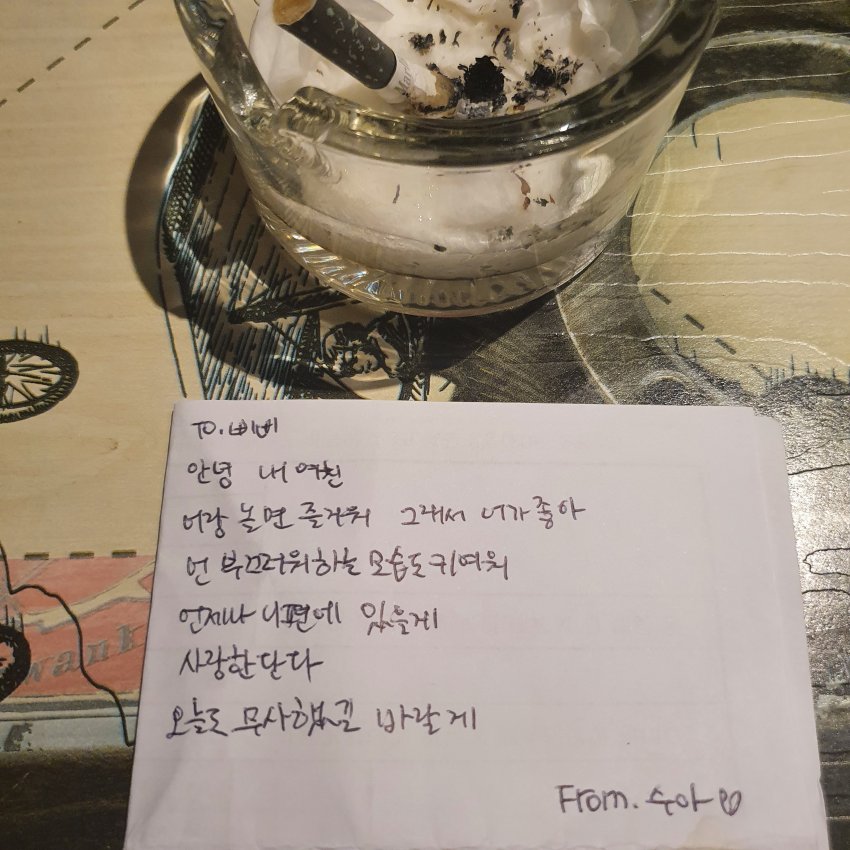 TO. 삐삐
안녕 내 여친
너랑 놀면 즐거워 그래서 너가 좋아
넌 부끄러워하는 모습도 귀여워
언제나 니편에 있을게
사랑한단다
오늘도 무사했길 바랄게
From. 수아♡
wank